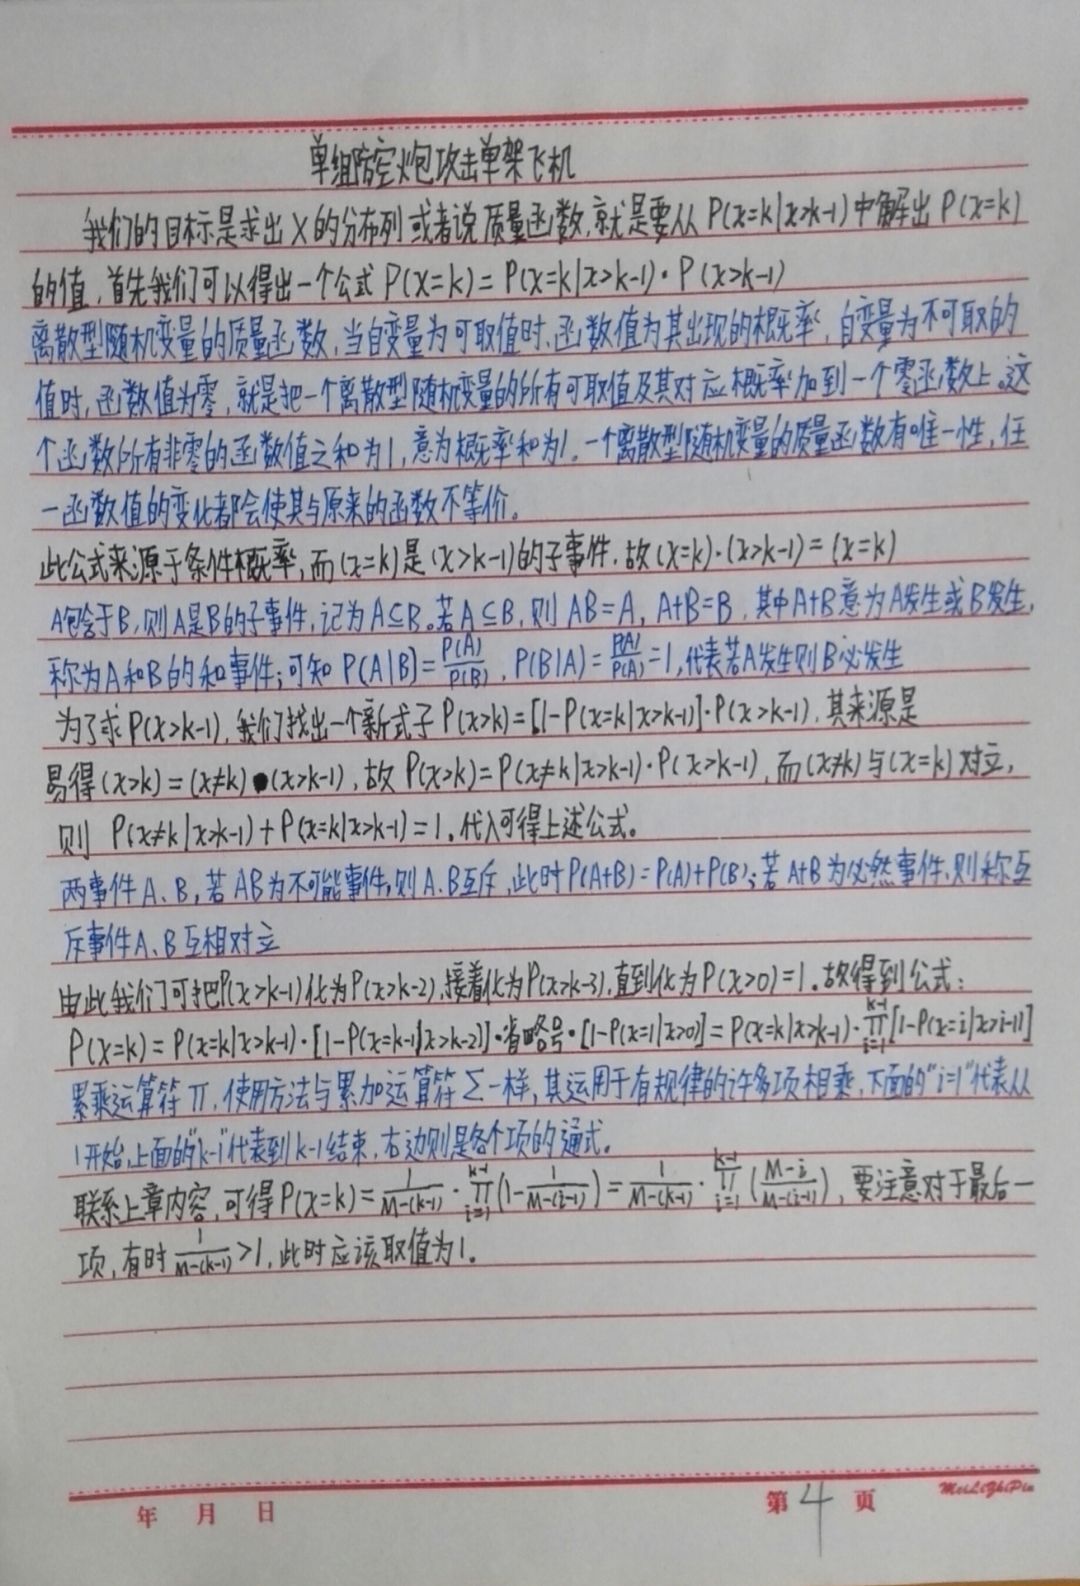 单组防空炮攻击单架飞机
我们的目标是求出X的分布列或者说质量函数,就是要从P(x=k|x>k-1)中解出P(x=k)
的值,首先我们可以得出一个公式P(x=k)=P(x=k|x>k-1)·P(x>k-1)
离散型随机变量的质量函数,当自变量为可取值时,函数值为其出现的概率,自变量为不可取的
值时,函数值为零,就是把一个离散型随机变量的所有可取值及其对应概率加到一个零函数上。这
个函数所有非零的函数值之和为1,意为概率和为1。一个离散型随机变量的质量函数有唯一性,任
一函数值的变化都会使其与原来的函数不等价。
此公式来源于条件概率,而(x=k)是(x>k-1)的子事件,故(x=k)·(x>k-1)=(x=k)
A包含于B,则A是B的子事件,记为A⊆B。若A⊆B,则AB=A,A+B=B,其中A+B意为A发生或B发生,
称为A和B的和事件;可知P(A|B)=P(A)/P(B),P(B|A)=P(A)/P(A)=1,代表若A发生则B必发生
为了求P(x>k-1),我们找出一个新式子P(x>k)=[1-P(x=k|x>k-1)]·P(x>k-1),其来源是
易得(x>k)=(x≠k)·(x>k-1),故P(x>k)=P(x≠k|x>k-1)·P(x>k-1),而(x≠k)与(x=k)对立,
则P(x≠k|x>k-1)+P(x=k|x>k-1)=1。代入可得上述公式。
两事件A、B,若AB为不可能事件,则A、B互斥,此时P(A+B)=P(A)+P(B);若A+B为必然事件,则称互
斥事件A、B互相对立
由此我们可把P(x>k-1)化为P(x>k-2),接着化为P(x>k-3),直到化为P(x>0)=1。故得到公式:
P(x=k)=P(x=k|x>k-1)·[1-P(x=k-1|x>k-2)]·省略号·[1-P(x=1|x>0)]=P(x=k|x>k-1)·∏_{i=1}^{k-1}[1-P(x=i|x>i-1)]
累乘运算符∏,使用方法与累加运算符Σ一样,其运用于有规律的许多项相乘,下面的"i=1"代表从
1开始,上面的"k-1"代表到k-1结束,右边则是各个项的通式。
联系上章内容,可得P(x=k)=1/(M-(k-1))·∏_{i=1}^{k-1}(1-1/(M-(i-1)))=1/(M-(k-1))·∏_{i=1}^{k-1}((M-i)/(M-(i-1))),要注意对于最后一
项,有时1/(M-(k-1))>1,此时应该取值为1。
年 月 日 第4页 MeiLiZhiPin